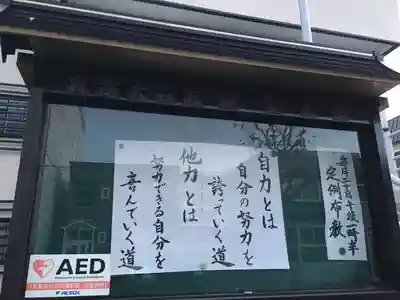 毎月二十日午後一時半
定例布教
自力とは
自分の努力を
誇っていく道
他力とは
努力できる自分を
喜んでいく道
AED
ALSOK